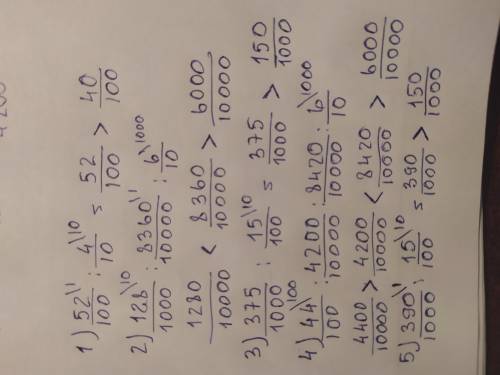 1) 52\1/100 : 4\10/10 = 52/100 > 40/100
2) 128\10/1000 : 8360\1/10000 : 6\1000/10
1280/10000 < 8360/10000 > 6000/10000
3) 375/1000 : 15\10/100 = 375/1000 > 150/1000
4) 44\100/100 : 4200/10000 : 8420/10000 : 6\1000/10
4400/10000 > 4200/10000 < 8420/10000 > 6000/10000
5) 390\1/1000 : 15\10/100 = 390/1000 > 150/1000